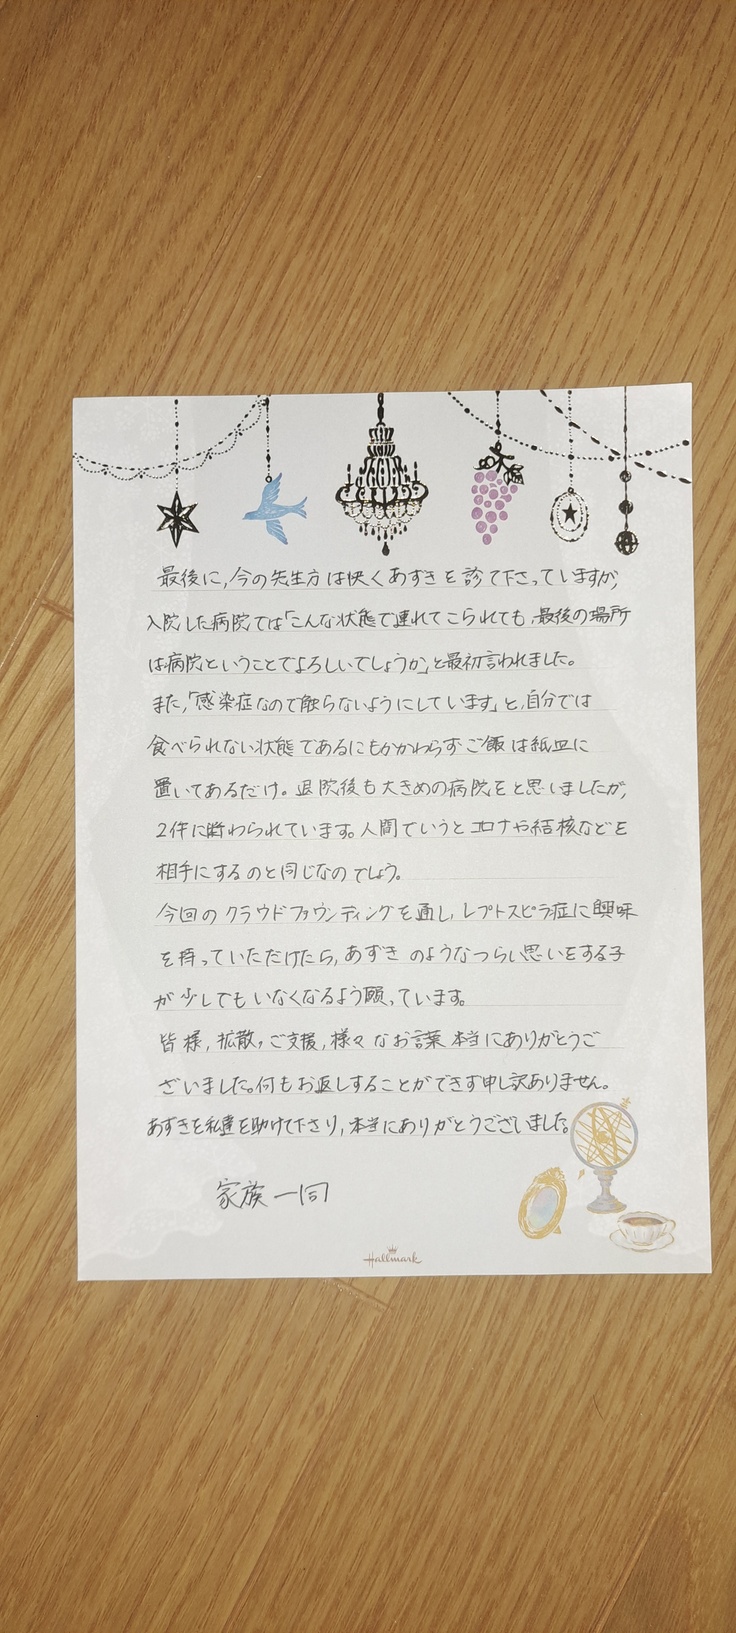 最後に,今の先生方は快くあずきを診て下さっていますが,
入院した病院では「こんな状態で連れてこられても,最後の場所
は病院ということでよろしいでしょうか」と最初言われました。
また,「感染症なので触らないようにしています」と,自分では
食べられない状態であるにもかかわらずご飯は紙皿に
置いてあるだけ。退院後も大きめの病院をと思いましたが,
2件に断わられています。人間でいうとコロナや結核などを
相手にするのと同じなのでしょう。
今回のクラウドファウンディングを通し,レプトスピラ症に興味
を持っていただけたら,あずきのようなつらい思いをする子
が少しでもいなくなるよう願っています。
皆様,拡散,ご支援,様々なお言葉本当にありがとうご
ざいました。何もお返しすることができず申し訳ありません。
あずきを私達を助けて下さり,本当にありがとうございました。
家族一同
Hallmark